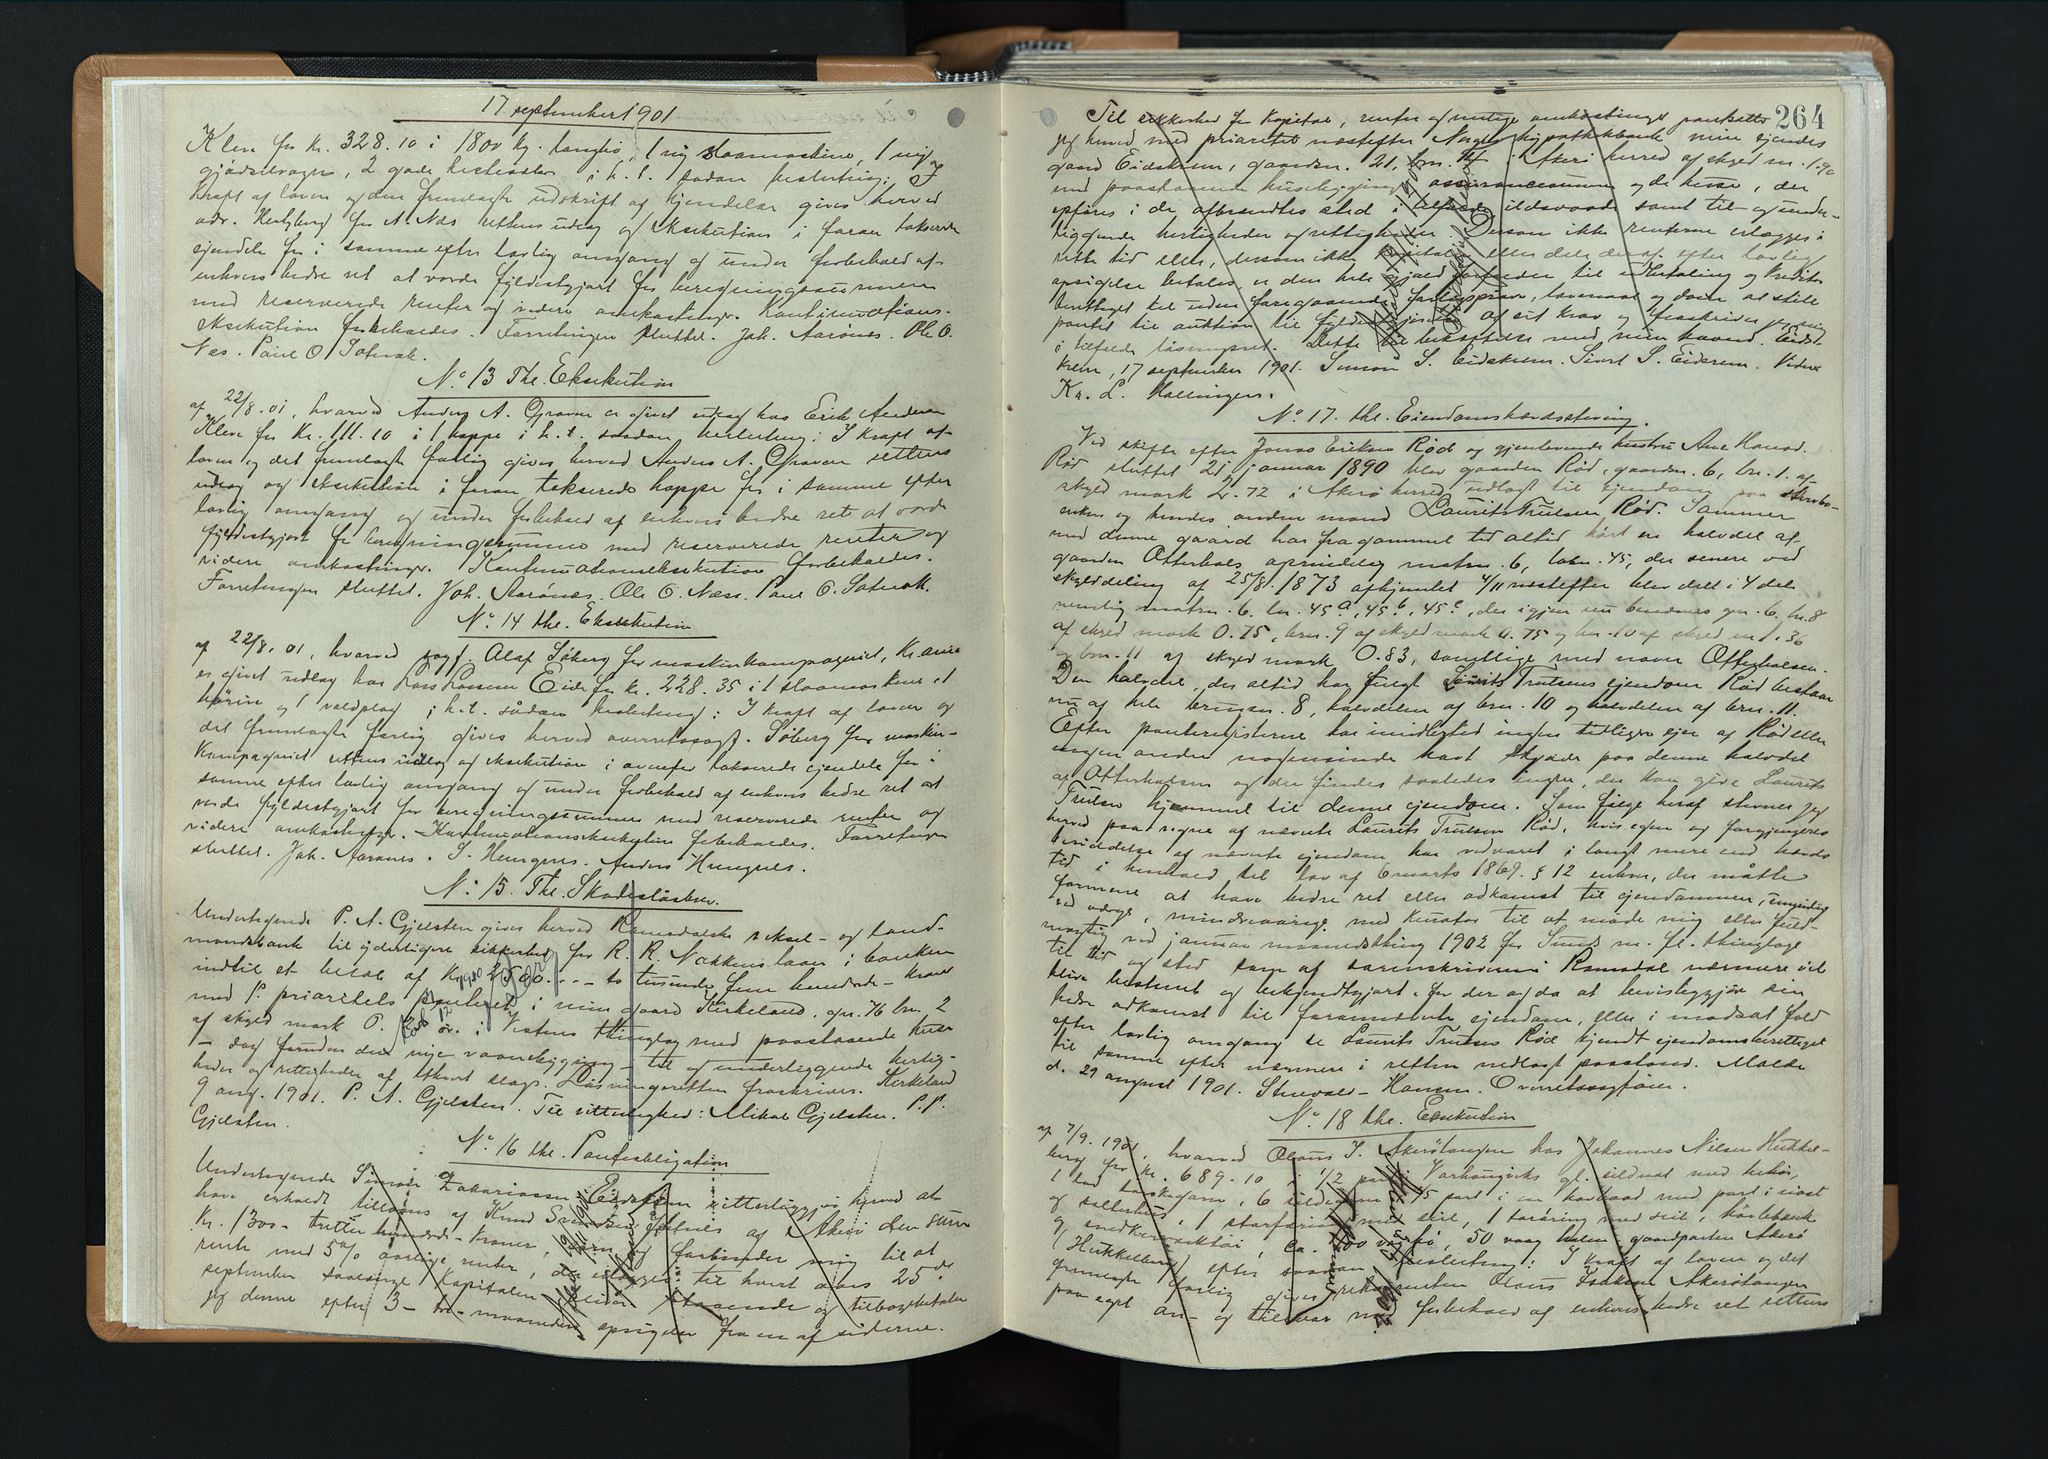 17 september 1901
Kleve for kr. 328.10 i 1800 kg. langhø, 1 ny slaamaskine, 1 ny
gjødselvogn, 2 gode hesteslæder i h.t. sadan beslutning: I
Kraft af loven og den fremlagte udskrift af kjendelse gives herved
adv. Hertzberg for A. Næs rettens udlæg og Eksekution i foran takserede
ejendele for i samme efter lovlig omgang og under forbehold af
enhvers bedre ret at vorde fyldestgjort for beregningssummen
med reserverede renter og videre omkostninger. Kontinuations-
eksekution forbeholdes. Forretningen sluttet. Joh. Aarönæs. Ole O.
Næs. Paul O. Solvak.
No 13 Thl. Eksekution
af 22/8.01, hvorved Anders A. Graven er givet udlæg hos Erik Andersen
Kleve for kr. 111.10 i 1 hoppe i h.t. saadan beslutning: I kraft af
loven og det fremlagte forlig gives herved Anders A. Graven rettens
udlæg og eksekution i foran takserede hoppe for i samme efter
lovlig omgang og under forbehold af enhvers bedre ret at vorde
fyldestgjort for beregningssummen med reserverede renter og
videre omkostninger. Kontinuationseksekution forbeholdes.
Forretningen sluttet. Joh. Aarönæs. Ole O. Næss. Paul O. Solvak.
No 14 thl. Eksekution
af 22/8.01, hvorved sagf. Olaf Söberg for maskinkompagniet, Kr.ania
er givet udlæg hos Lars Larsen Eide for kr. 228.35 i 1 slaamaskine et
og 1 voldplog i h.t. sådan beslutning: I Kraft af loven og
det fremlagte forlig gives herved overretssagf. Söberg for maskin-
kompagniet rettens udlæg og eksekution i ovenfor takserede ejendele for i
samme efter lovlig omgang og under forbehold af enhvers bedre ret at
vorde fyldestgjort for beregningssummen med reserverede renter og
videre omkostninger. Kontinuationseksekution forbeholdes. Forretningen
sluttet. Joh. Aarönæs. S. Hungnes. Anders Hungnes.
No 15. Thl. Skadesløsbrev.
Undertegnede P. A. Gjelsten gives herved Romsdalske veksel- og land-
mandsbank til yderligere sikkerhed for R. R. Nakkens laan i banken
indtil et beløb af Kr 2500 - to tusinde fem hundrede - kroner
med 1. prioritets panteret i min gaard Kirkeland, gnr. 76 bn. 2
af skyld mark 0. ør. i Vestnes thinglag med paastaaende huse
- dog foruden den nye vaaningsbygning - til og underliggende herlig-
heder og rettigheder af ethvert slags. Løsningsretten fraskrives. Kirkeland
9 aug. 1901. P. A. Gjelsten. Til vitterlighed: Mikal Gjelsten. P. P.
Gjelsten.
No 16 thl. Panteobligation
Undertegnede Simon Zakariassen Eidskrem vitterliggjør herved at
have erholdt tillaans af Knud Svendsen af Akerö den sum
kr. 1300 - tretten hundrede - kroner, og forbinder mig til at
rente med 5% aarlige renter, der erlægges til hvert aars 25de
september saalænge Kapitalen bliver staaende og tilbagebetaler
jeg denne efter 3 - tre - maaneders opsigelse fra en af siderne.
264
Til sikkerhed for kapital, renter og mulige omkostninger pantsætter
jeg herved med prioritet næstefter Norges hypothekbank min ejendes
gaard Eidskrem, gaardsn. 21, brn. 4 i Akerö herred af skyld m. 1.90
med paastaaende husebygninger, assurancesummen og de huse, der
opføres i de afbrændtes sted i tilfælde ildsvaade samt til og under-
liggende herligheder og rettigheder. Dersom ikke renterne erlægges i
rette tid eller, dersom ikke kapitalen eller dele deraf efter lovlig
opsigelse betales er den hele gjæld forfalden til udbetaling og kreditor
berettiget til uden foregaaende forligsprøve, lovmaal og dom at stille
pantet til auktion til fyldestgjørelse af sit krav og fraskriver jeg mig
i tilfælde løsningsret. Dette til bekræftelse med min haand. Eids-
krem, 17 september 1901. Simon S. Eidskrem. Sivert S. Eidsrem. Vidne
Kr. L. Hallingen.
No 17. thl. Eiendomshævdsstevning.
Ved skifte efter Jonas Eriksen Rød og gjenlevende hustru Ane Hansd.
Rød sluttet 21 januar 1890 blev gaarden Rød, gaardsn. 6, bn. 1. af
skyld mark 2.72 i Akerö herred udlagt til ejendom paa
enken og hendes anden mand Laurits Trulsen Rød. Sammen
med denne gaard har fra gammel tid altid hørt en halvdel af
gaarden Otterhals oprindelig matrn. 6, løbn. 45, der senere ved
skylddeling af 25/8.1873 afhjemlet 4/11 næstefter blev delt i 4 dele
nemlig matrn. 6. ln. 45a, 45b, 45c, der igjen nu benævnes gn. 6, bn. 8
af skyld mark 0.75, brn. 9 af skyld mark 0.75 og bn. 10 af skyld m 1.36
og brn. 11 af skyld mark 0.83, samtlige med navn Otterhalsen.
Den halvdel, der altid har fulgt Laurits Trulsens ejendom Rød bestaar
nu af hele brugsn. 8, halvdelen af brn. 10 og halvdelen af brn. 11.
Efter panteregisterne har imidlertid ingen tidligere ejer af Rød eller
nogen anden nogensinde havt skjøde paa denne halvdel
af Otterhalsen og der findes saaledes ingen, der kan give Laurits
Trulsen hjemmel til denne ejendom. Som følge heraf stevner jeg
herved paa vegne af nævnte Laurits Trulsen Rød, hvis egen og forgjængeres
besiddelse af nævnte ejendom har vedvaret i langt mere end hævds
tid i henhold til lov af 6 marts 1869 § 12 enhver, der måtte
formene at have bedre ret eller adkomst til ejendommen, umyndig
ved værge, mindreaarige med kurator til at møde mig eller fuld-
mægtig ved januar maanedsthing 1902 for Sunds m. fl. thinglage
til tid og sted som af sorenskriveren i Romsdal nærmere vil
blive bestemt og bekjendtgjort, for der og da at bevisliggjøre sin
bedre adkomst til foranævnte ejendom, eller i modsat fald
efter lovlig omgang se Laurits Trulsen Rød kjendt ejendomsberettiget
til samme efter nærmere i retten nedlagt paastand. Molde
d. 29 august 1901. Stenvald-Hansen. Overretssagfører.
No 18 thl. Eksekution
af 7/9.1901, hvorved Olaus I. Akerötangen hos Johannes Nilsen Hukkel-
berg for kr. 689.10 i 1/2 part gl. sildenot med behör,
1 lod torskegarn, 6 sildegarn, 1/5 part i en med part i
og 1 storfæring med seil, 1 færing med seil,
og snedkerværktøi, ca. 100 vog hø, 50 vaag halm gaardparten Akerö
(Hukkelberg) efter saadan beslutning: I kraft af loven og det
fremlagte forlig gives rekvirenten Olaus Isaksen Akerötangen
paa eget an- og tilsvar med forbehold af enhvers bedre ret rettens